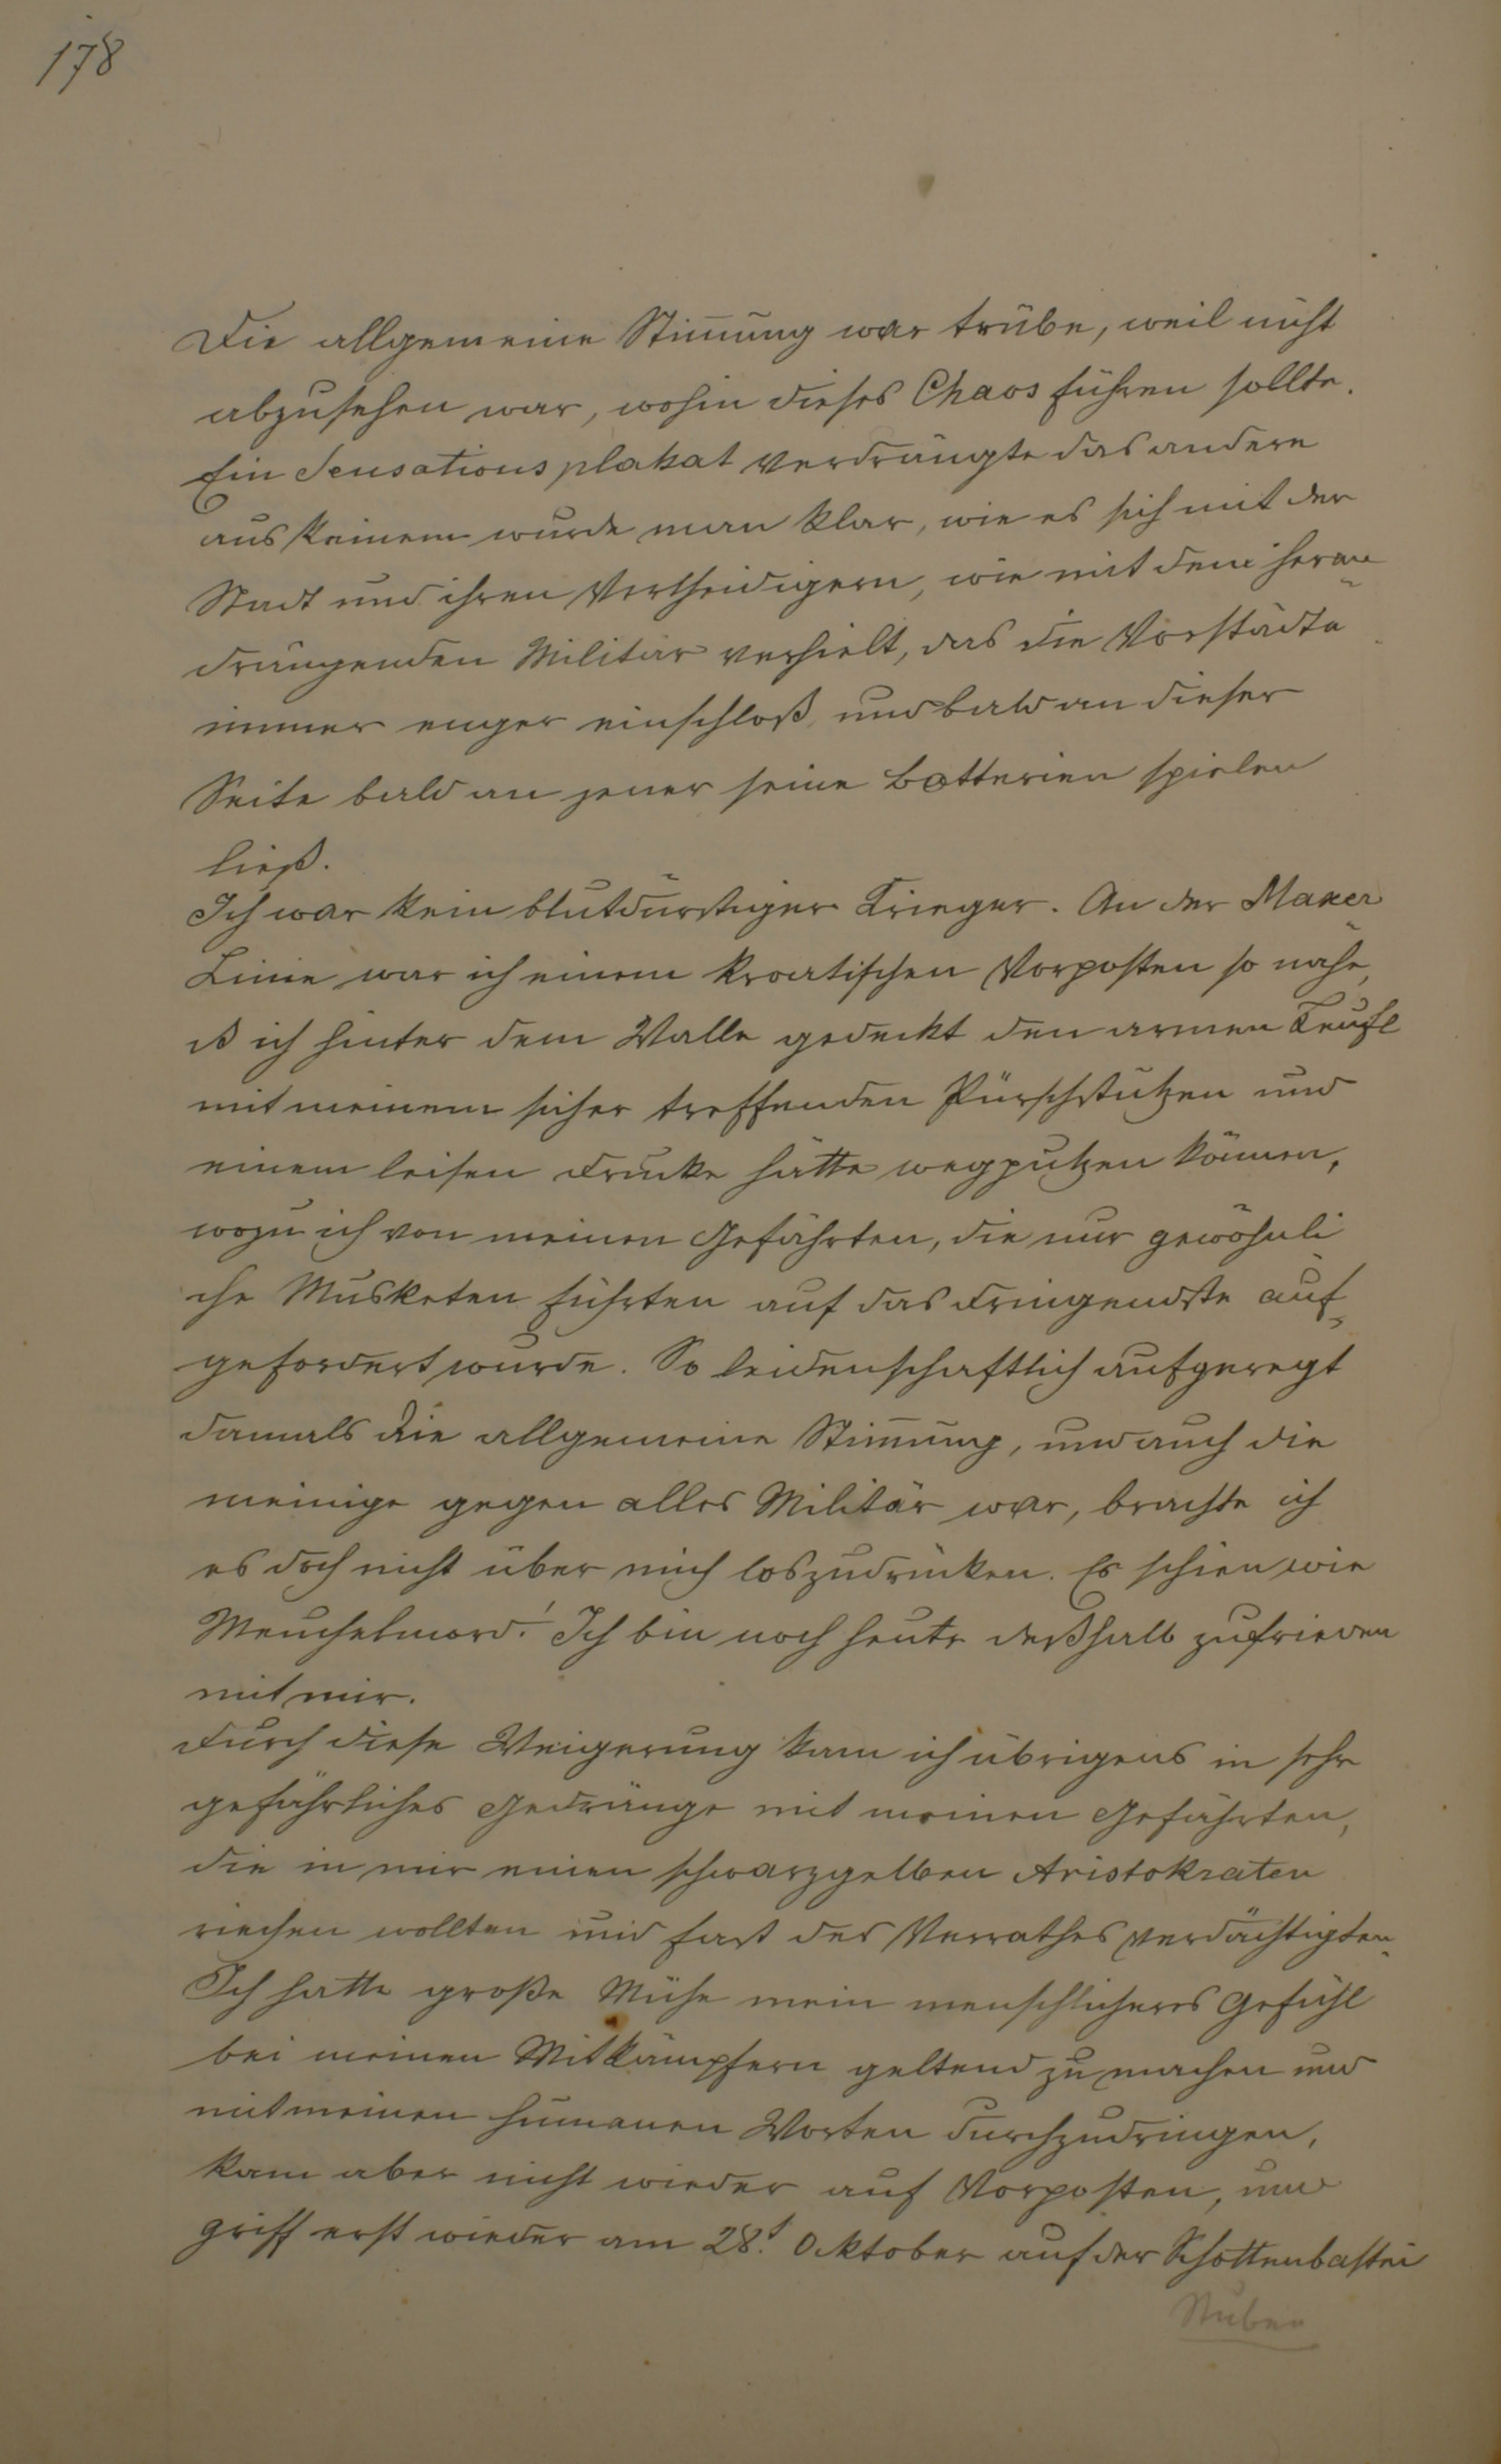 178
Die allgemeine Stim̄ung war trübe, weil nicht
abzusehen war, wohin dieses Chaos führen sollte.
Ein Sensationsplakat verdrängte das andere
aus keinem wurde man klar, wie es sich mit der
Stadt und ihren Vertheidigern, wie mit dem heran=
drängenden Militär verhielt, das die Vorstädte
immer enger einschloß und bald an dieser
Seite bald an jener seine Batterien spielen
ließ.
Ich war kein blutdürstiger Krieger. An der Maxer
Linie war ich einem kroatischen Vorposten so nahe,
ß ich hinter dem Walle gedeckt den armen Teufl
mit meinem sicher treffenden Pürschstutzen und
einem leisen Drucke hätte wegputzen können,
wozu ich von meinen Gefährten, die nur gewöhnli
che Musketen führten auf das Dringendste auf=
gefordert wurde. So leidenschaftlich aufgeregt
damals die allgemeine Stim̄ung, und auch die
meinige gegen alles Militär war, brachte ich
es doch nicht über mich loszudrücken. Es schien wie
Meuchelmord! Ich bin noch heute deßhalb zufrieden
mit mir.
Durch diese Weigerung kam ich übrigens in sehr
gefährliches Gedränge mit meinen Gefährten,
die in mir einen schwarzgelben Aristokraten
riechen wollten und fast des Verrathes verdächtigten.
Ich hatte große Mühe mein menschlicheres Gefühl
bei meinen Mitkämpfern geltend zu machen und
mit meinen humanen Worten durchzudringen,
kam aber nicht wieder auf Vorposten, und
griff erst wieder am 28t. Oktober auf der Schottenbastei
Stuben